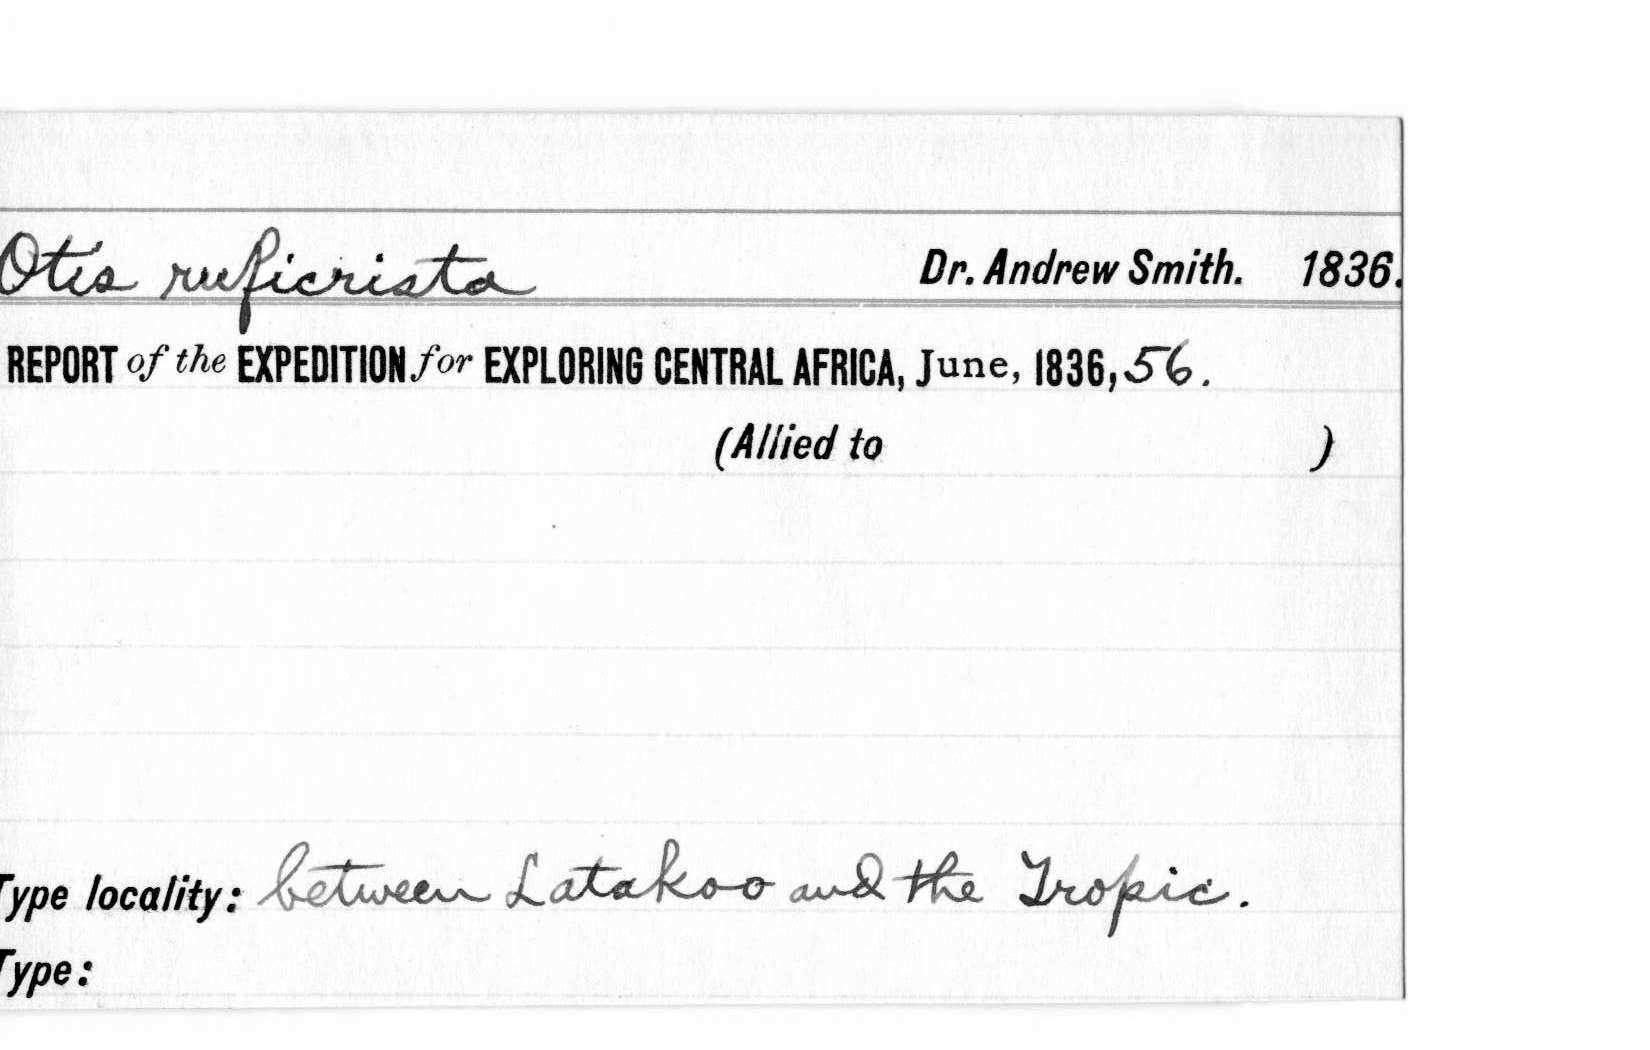 Otis ruficrista Dr. Andrew Smith. 1836.
REPORT of the EXPEDITION for EXPLORING CENTRAL AFRICA, June, 1836, 56.
(Allied to )
Type locality: between Latakoo and the Tropic.
Type: